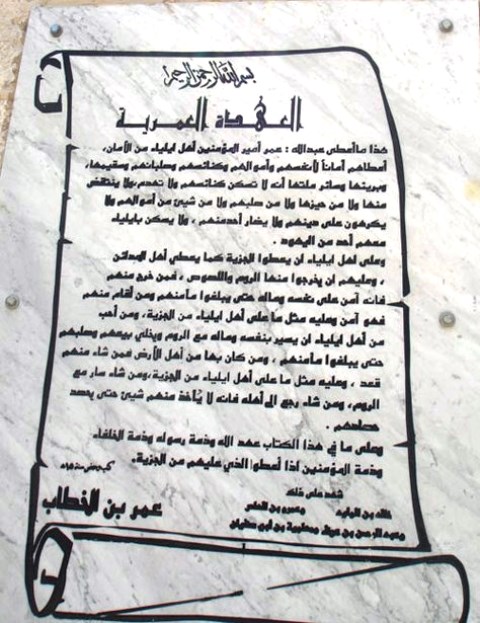 بسم الله الرحمن الرحيم
العهدة العمرية
هذا ما أعطى عبدالله : عمر أمير المؤمنين أهل ايلياء من الأمان،
أعطاهم أماناً لأنفسهم وأموالهم وكنائسهم وصلبانهم وسقيمها،
وبريئها وسائر ملتها أنه لا تسكن كنائسهم ولا تهدم،ولا ينتقض
منها ولا من حيزها ولا من صلبهم ولا من شيئ من أموالهم ولا
يكرهون على دينهم ولا يضار أحد منهم ، ولا يسكن بايلياء
معهم أحد من اليهود .
وعلى أهل ايلياء ان يعطوا الجزية كما يعطي أهل المدائن
، وعليهم ان يخرجوا منها الروم واللصوص ، فمن خرج منهم
فانه آمن على نفسه وماله حتى يبلغوا مأمنهم ومن أقام منهم
فهو آمن وعليه مثل ما على أهل ايلياء من الجزية، ومن أحب
من أهل ايلياء ان يسير بنفسه وماله مع الروم ويخلي بيعهم وصلبهم
حتى يبلغوا مأمنهم ، ومن كان بها من أهل الأرض فمن شاء منهم
قعد ، وعليه مثل ما على أهل ايلياء من الجزية،ومن شاء سار مع
الروم، ومن شاء رجع الى أهله فانه لا يُأخذ منهم شيئ حتى يحصد
حصادهم .
وعلى ما في هذا الكتاب عهد الله وذمة رسوله وذمة الخلفاء
وذمة المؤمنين اذا أعطوا الذي عليهم من الجزية.
كتب وحضر سنة ١٥هـ
شهد على ذلك
خالد بن الوليد وعمرو بن العاص
وعبد الرحمن بن عوف ومعاوية بن أبي سفيان
عمر بن الخطاب